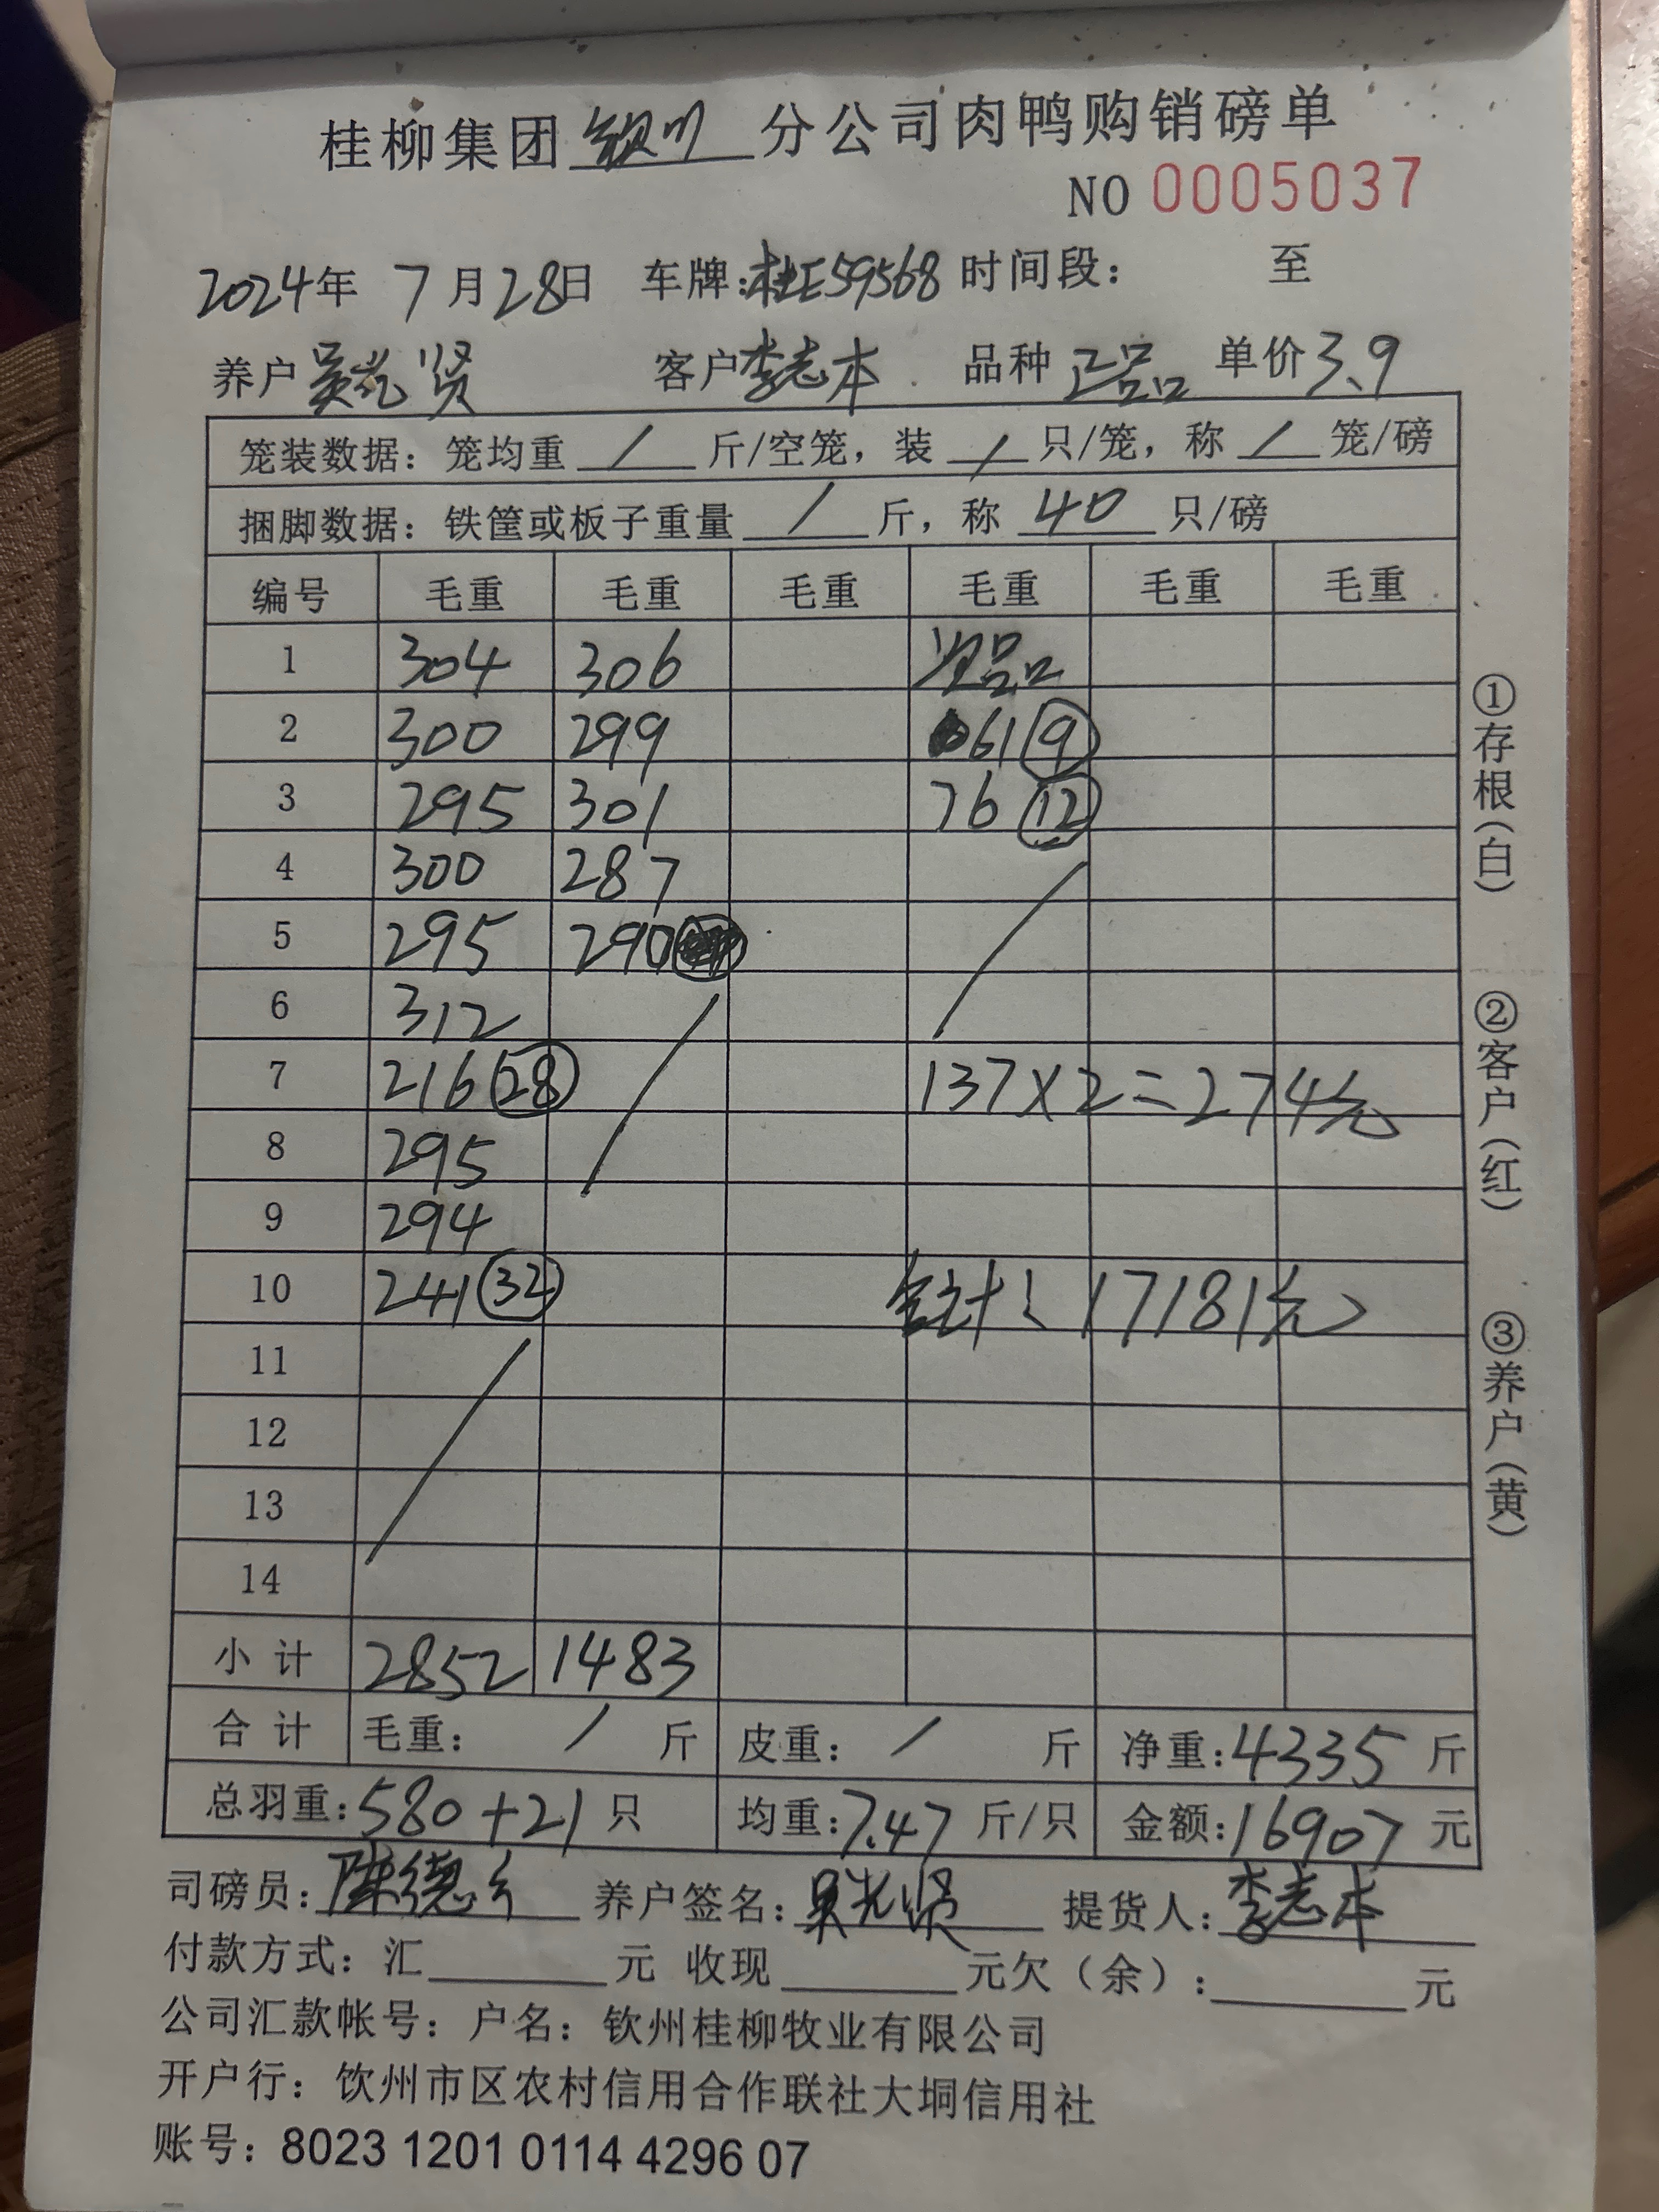 桂柳集团钦州分公司肉鸭购销磅单
NO 0005037
2024年 7月28日 车牌:桂E59568 时间段: 至
养户 吴光贤 客户 李志本 品种 正品 单价 3.9
笼装数据: 笼均重 / 斤/空笼, 装 / 只/笼, 称 / 笼/磅
捆脚数据: 铁筐或板子重量 / 斤, 称 40 只/磅
编号 毛重 毛重 毛重 毛重 毛重 毛重
1 304 306 次品
2 300 299 61 9
3 295 301 76 12
4 300 287
5 295 290
6 312
7 216 28 137×2=274元
8 295
9 294
10 241 32 合计: 17181元
11
12
13
14
小计 2852 1483
合计 毛重: / 斤 皮重: / 斤 净重:4335 斤
总羽重:580+21 只 均重:7.47 斤/只 金额:16907 元
司磅员: 陈德 养户签名: 吴光贤 提货人: 李志本
付款方式: 汇 元 收现 元欠(余): 元
公司汇款帐号: 户名: 钦州桂柳牧业有限公司
开户行: 钦州市区农村信用合作联社大垌信用社
账号: 8023 1201 0114 4296 07
①存根(白)
②客户(红)
③养户(黄)